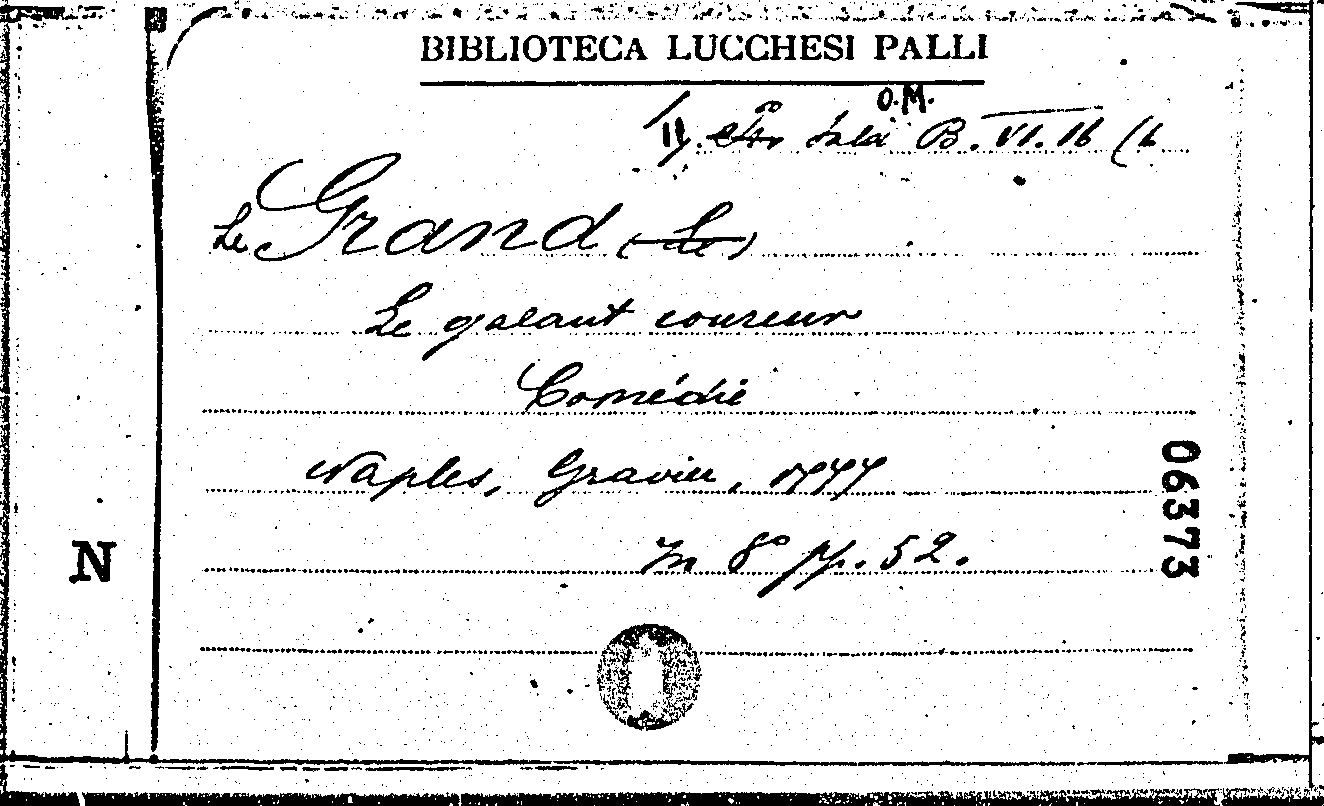 BIBLIOTECA LUCCHESI PALLI
O.M.
Sala B. VI. 16 (6
Le Grand (Le)
Le galant coureur
Comédie
Naples, Gravier, 1777
In 8° pp. 52.
06373
N